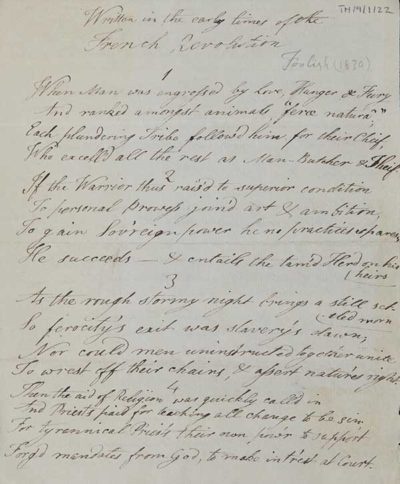 TH19/1122
Written in the early times of the
French Revolution
Foolish (1830)
1
When Man was engrossed by Love, Hunger & Fury
And ranked amongst animals "feræ natura,"
Each plundering Tribe followed him for their Chief,
Who excell'd all the rest as Man-Butcher & Thief
2
If the Warrior thus rais'd to superior condition
To personal Prowess join'd art & ambition,
To gain Sov'reign power he no practices spares,
He succeeds — & entails the tam'd Herd on his
heirs
3
As the rough stormy night brings a still
morn
So ferocity's exit was slavery's dawn;
Nor could men uninstructed together unite
To wrest off their chains, & assert nature's right.
4
Then the aid of Religion was quickly call'd in
And Priests paid for teaching all change to be sin
For tyrannical Priests their own pow'r to support
Forg'd mandates from God, to make int'rest at Court.